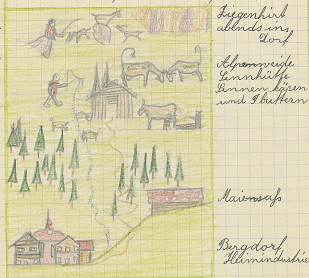 Ziegenhirt
abends ins
Dorf
Alpenweide
Sennhütte
Sennen käsen
und buttern
Maiensäß
Bergdorf
Heimindustrie